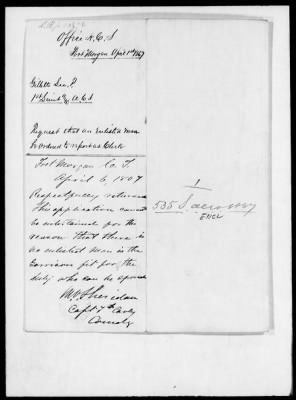 Office A.C.S
Fort Morgan April 1st 1867
Gillette Lee. P.
1st Lieut &c A.C.S
Request that an enlisted man
be ordered to report as Clerk
Fort Morgan C. T.
April 6, 1867
Respectfully returned
This application cannot
be entertained for the
reason that there is
no enlisted man in the
Garrison fit for the
duty who can be spared
M V Sheridan
Capt 7th Cavly
Comdg
1
535
ENCL